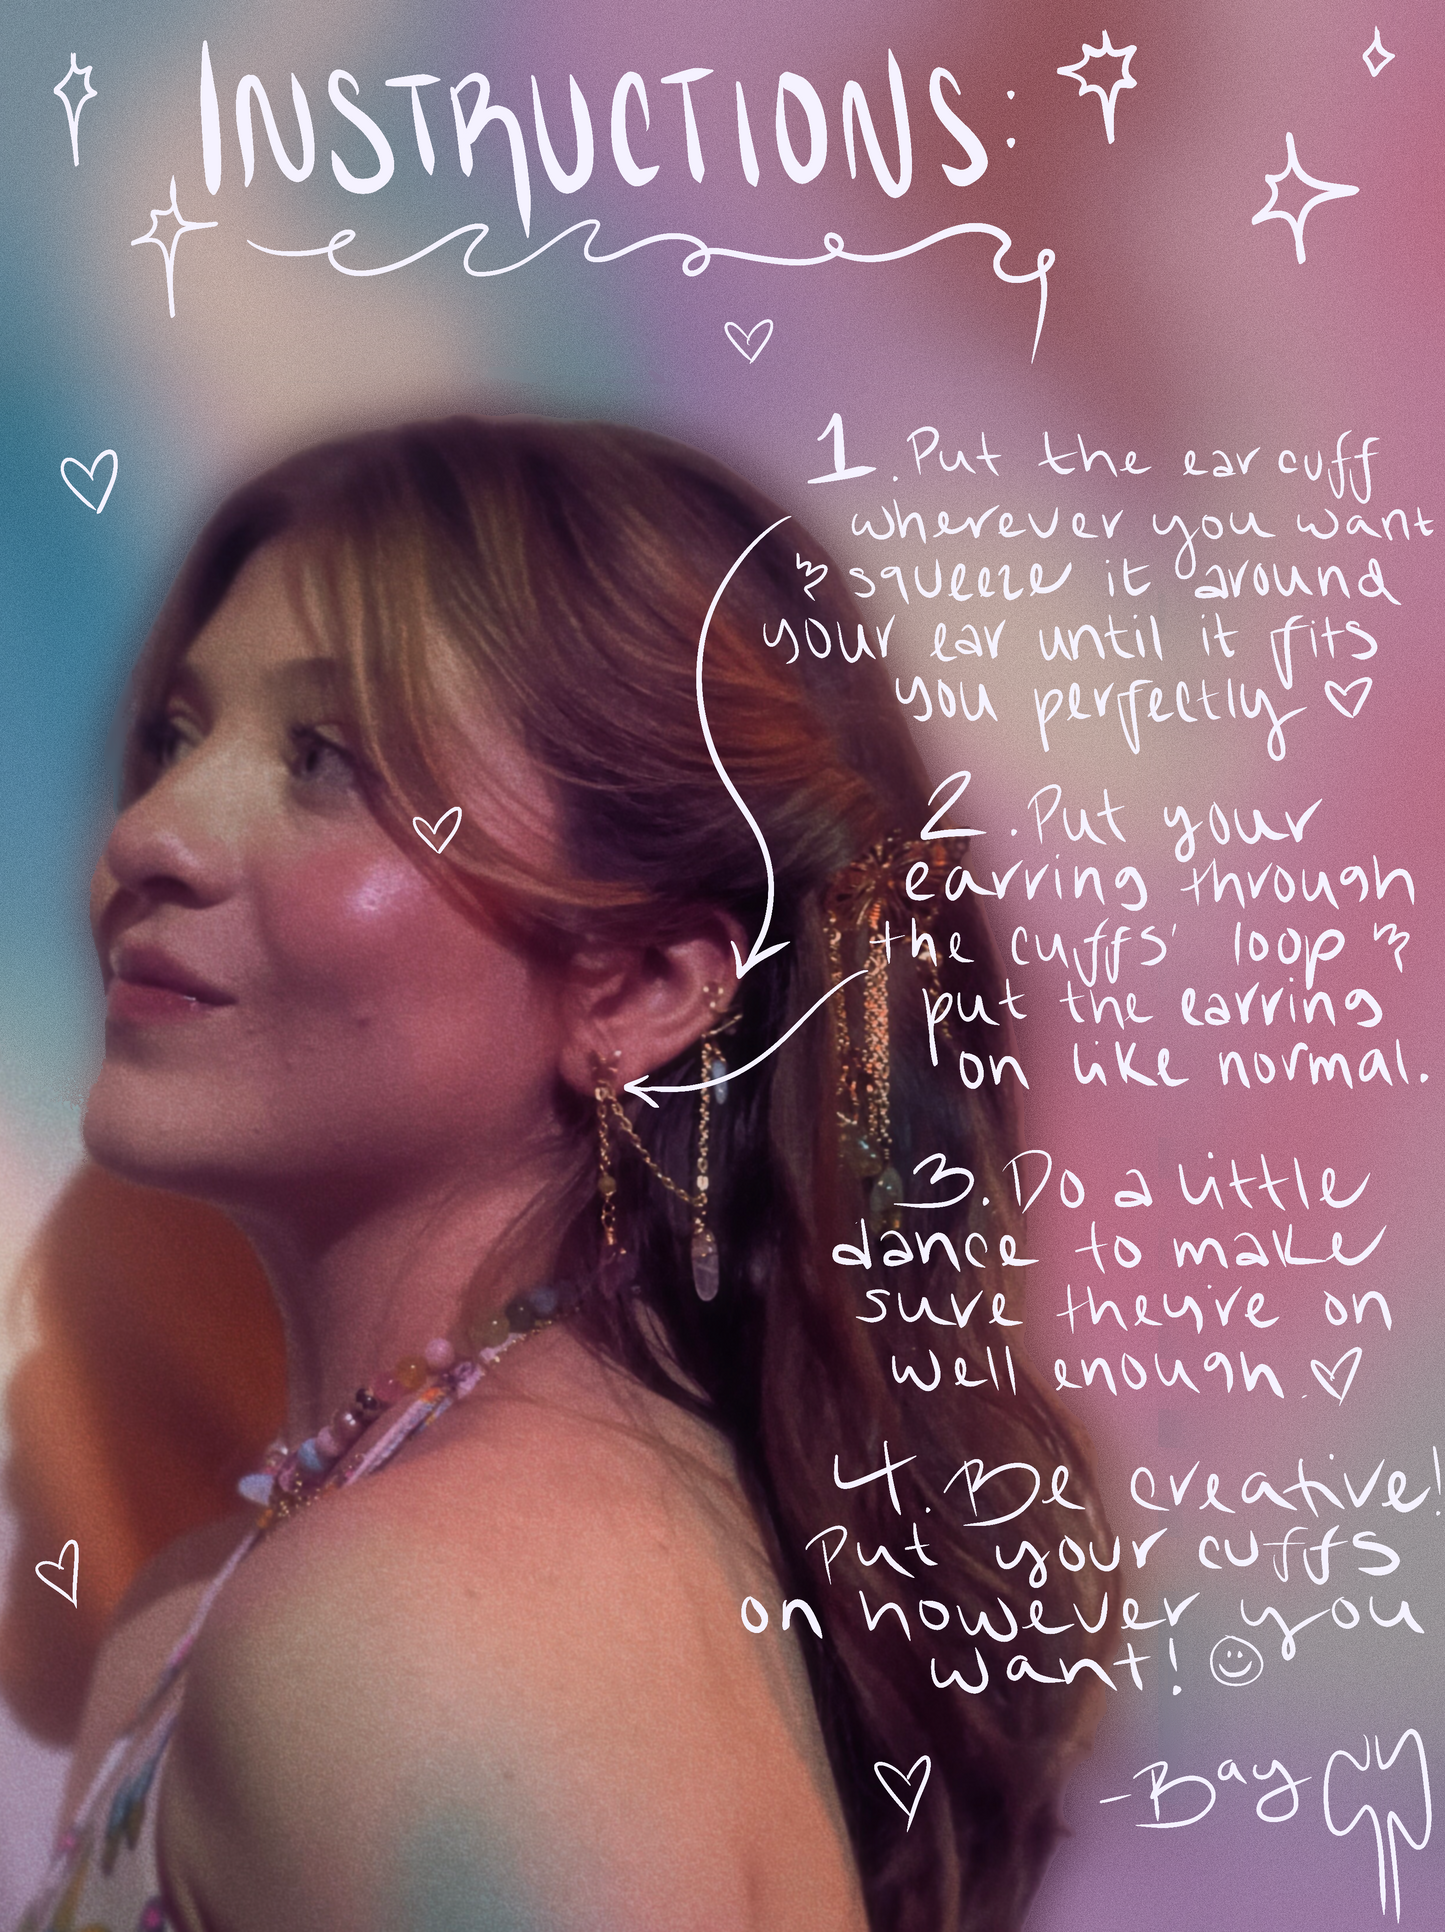 INSTRUCTIONS:
1. Put the ear cuff
wherever you want
& squeeze it around
your ear until it fits
you perfectly ♡
2. Put your
earring through
the cuffs' loop &
put the earring
on like normal.
3. Do a little
dance to make
sure they're on
well enough. ♡
4. Be creative!
Put your cuffs
on however you
want! ☺
-Bay